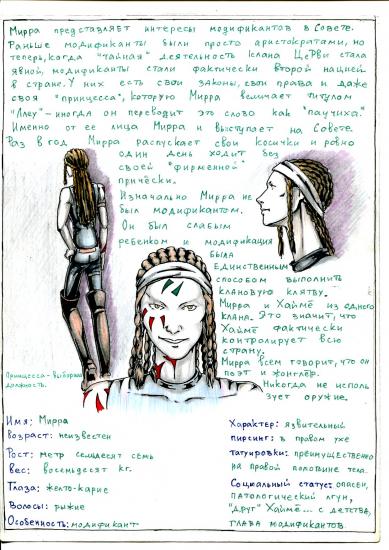 Мирра представляет интересы модификантов в Совете.
Раньше модификанты были просто аристократами, но
теперь, когда "чайная" деятельность Клана ЦеРви стала
явной, модификанты стали фактически второй нацией
в стране. У них есть свои законы, свои права и даже
своя "принцесса", которую Мирра величает титулом
иногда он переводит это слово как "паучиха."
Именно от ее лица Мирра и выступает на Совете.
Раз в год Мирра распускает свои косички и ровно
один день ходит без
своей "фирменной"
причёски.
Изначально Мирра не
был модификантом.
Он был слабым
ребенком и модификация
была
единственным
способом выполнить
клановую клятву.
Мирра и Хаймё из одного
клана. Это значит, что
Хаймё фактически
контролирует всю
страну.
Мирра всем говорит, что он
поэт и жонглёр.
Никогда не исполь
зует оружие.
Принцесса - выборная
должность.
Имя: Мирра
Возраст: неизвестен
Рост: метр семьдесят семь
Вес: восемьдесят кг.
Глаза: желто-карие
Волосы: рыжие
Особенность: модификант
Характер: язвительный
пирсинг: в правом ухе
татуировки: преимущественно
на правой половине тела.
Социальный статус: опасен,
патологический лгун,
"друг" Хаймё... с детства,
глава модификантов.